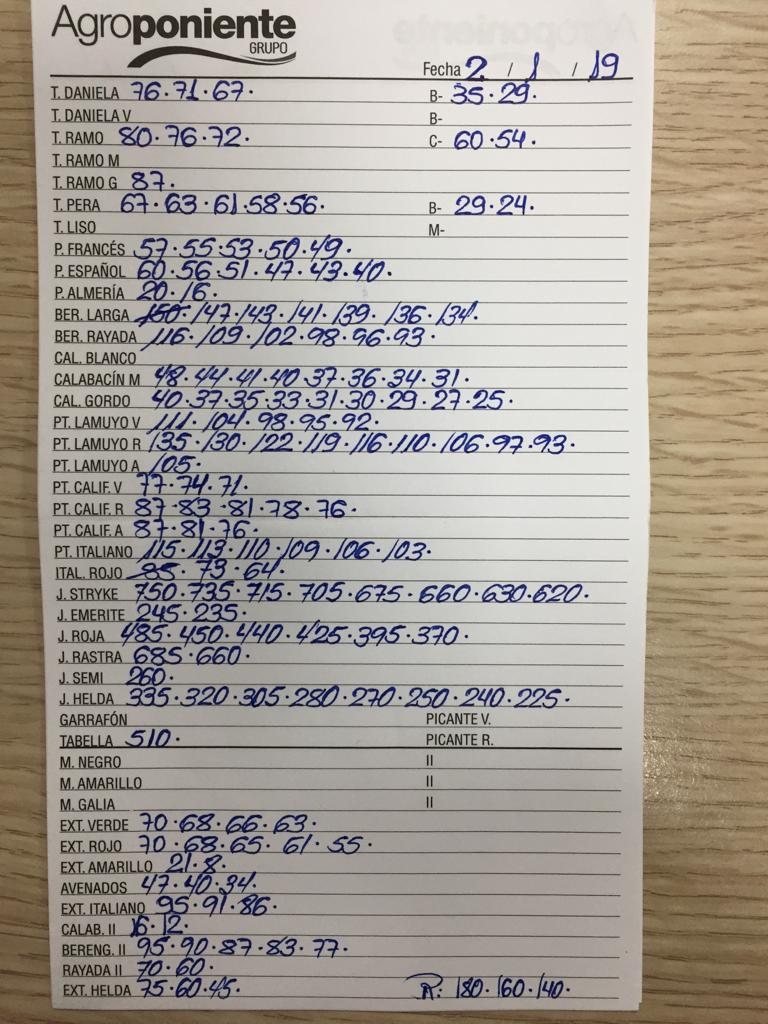 Agroponiente
GRUPO
Fecha 2 / 1 / 19
T. DANIELA 76.71.67. B- 35.29.
T. DANIELA V B-
T. RAMO 80.76.72. C- 60.54.
T. RAMO M
T. RAMO G 87.
T. PERA 67.63.61.58.56. B- 29.24.
T. LISO M-
P. FRANCÉS 57.55.53.50.49.
P. ESPAÑOL 60.56.51.47.43.40.
P. ALMERÍA 20.16.
BER. LARGA 150.147.143.141.139.136.134.
BER. RAYADA 116.109.102.98.96.93.
CAL. BLANCO
CALABACÍN M 48.44.41.40.37.36.34.31.
CAL. GORDO 40.37.35.33.31.30.29.27.25.
PT. LAMUYO V 111.104.98.95.92.
PT. LAMUYO R 135.130.122.119.116.110.106.97.93.
PT. LAMUYO A 105.
PT. CALIF. V 77.74.71.
PT. CALIF. R 87.83.81.78.76.
PT. CALIF. A 87.81.76.
PT. ITALIANO 115.113.110.109.106.103.
ITAL. ROJO 85.73.64.
J. STRYKE 750.735.715.705.675.660.630.620.
J. EMERITE 245.235.
J. ROJA 485.450.440.425.395.370.
J. RASTRA 685.660.
J. SEMI 260.
J. HELDA 335.320.305.280.270.250.240.225.
GARRAFÓN PICANTE V.
TABELLA 510. PICANTE R.
M. NEGRO II
M. AMARILLO II
M. GALIA II
EXT. VERDE 70.68.66.63.
EXT. ROJO 70.68.65.61.55.
EXT. AMARILLO 21.8.
AVENADOS 47.40.34.
EXT. ITALIANO 95.91.86.
CALAB. II 16.12.
BERENG. II 95.90.87.83.77.
RAYADA II 70.60.
EXT. HELDA 75.60.45. R: 180.160.140.